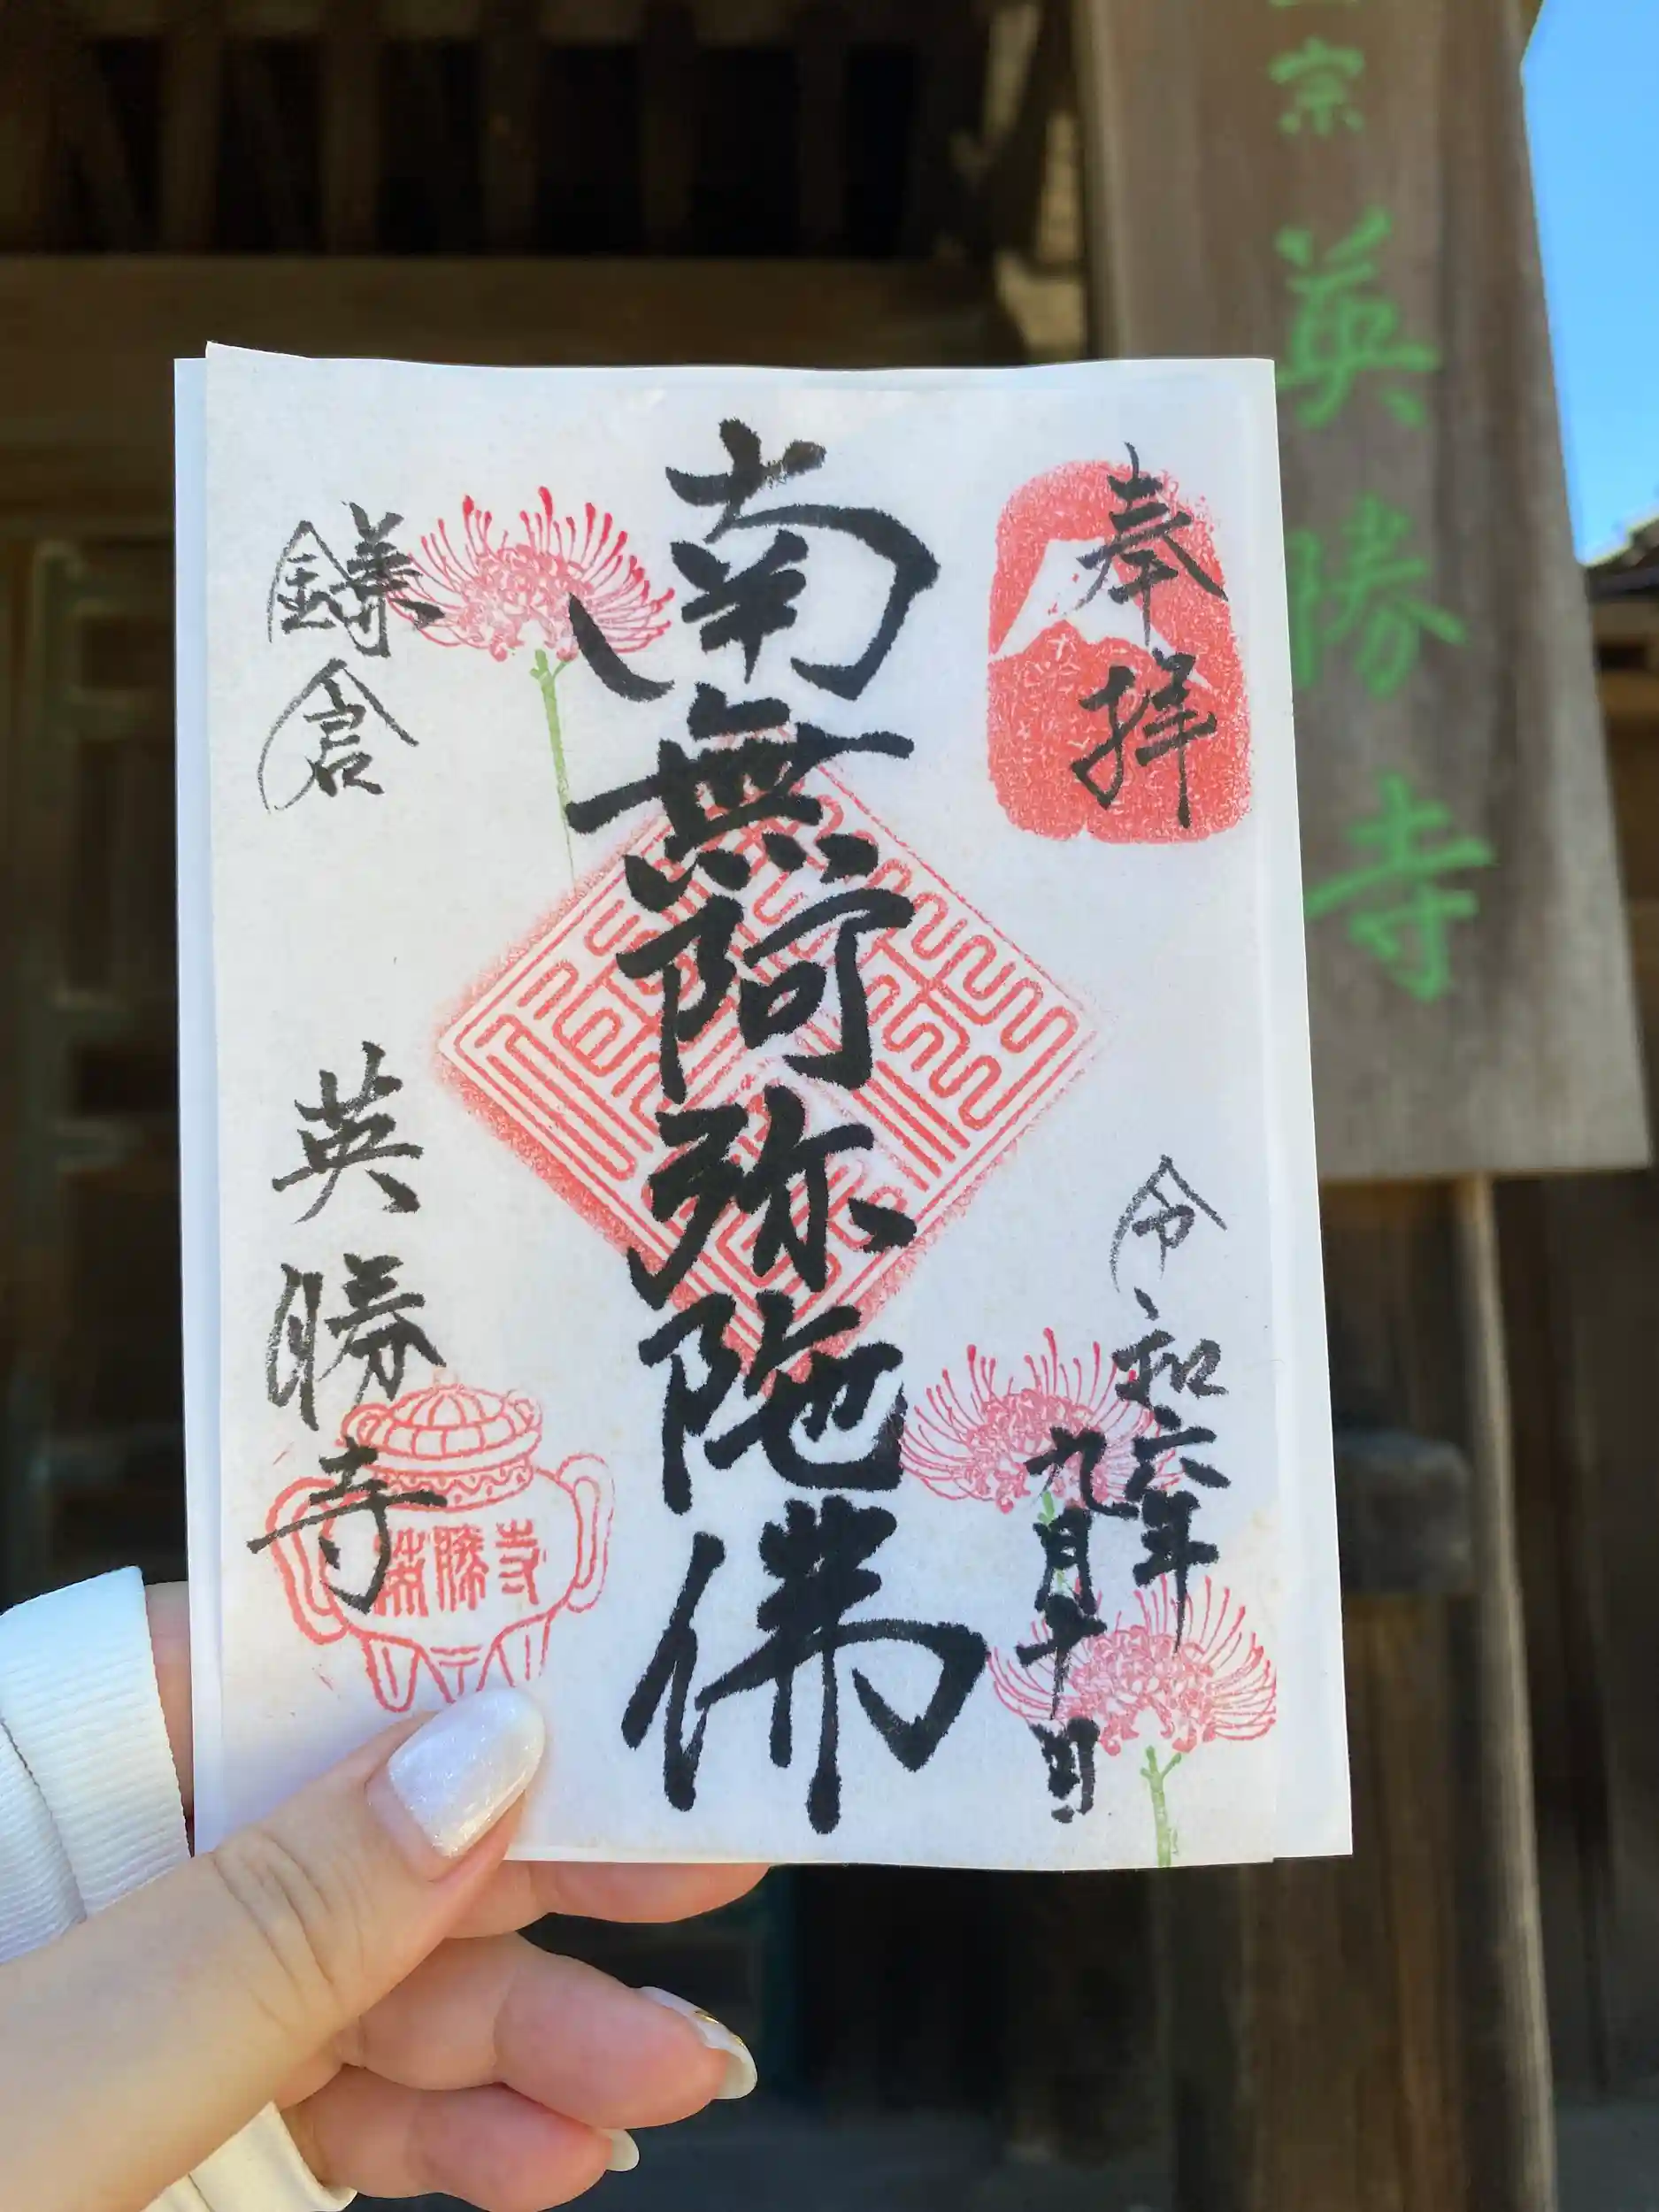 奉拝
令和六年
九月十日
南無阿弥陀佛
鎌倉
英勝寺
英勝寺
宗
英勝寺